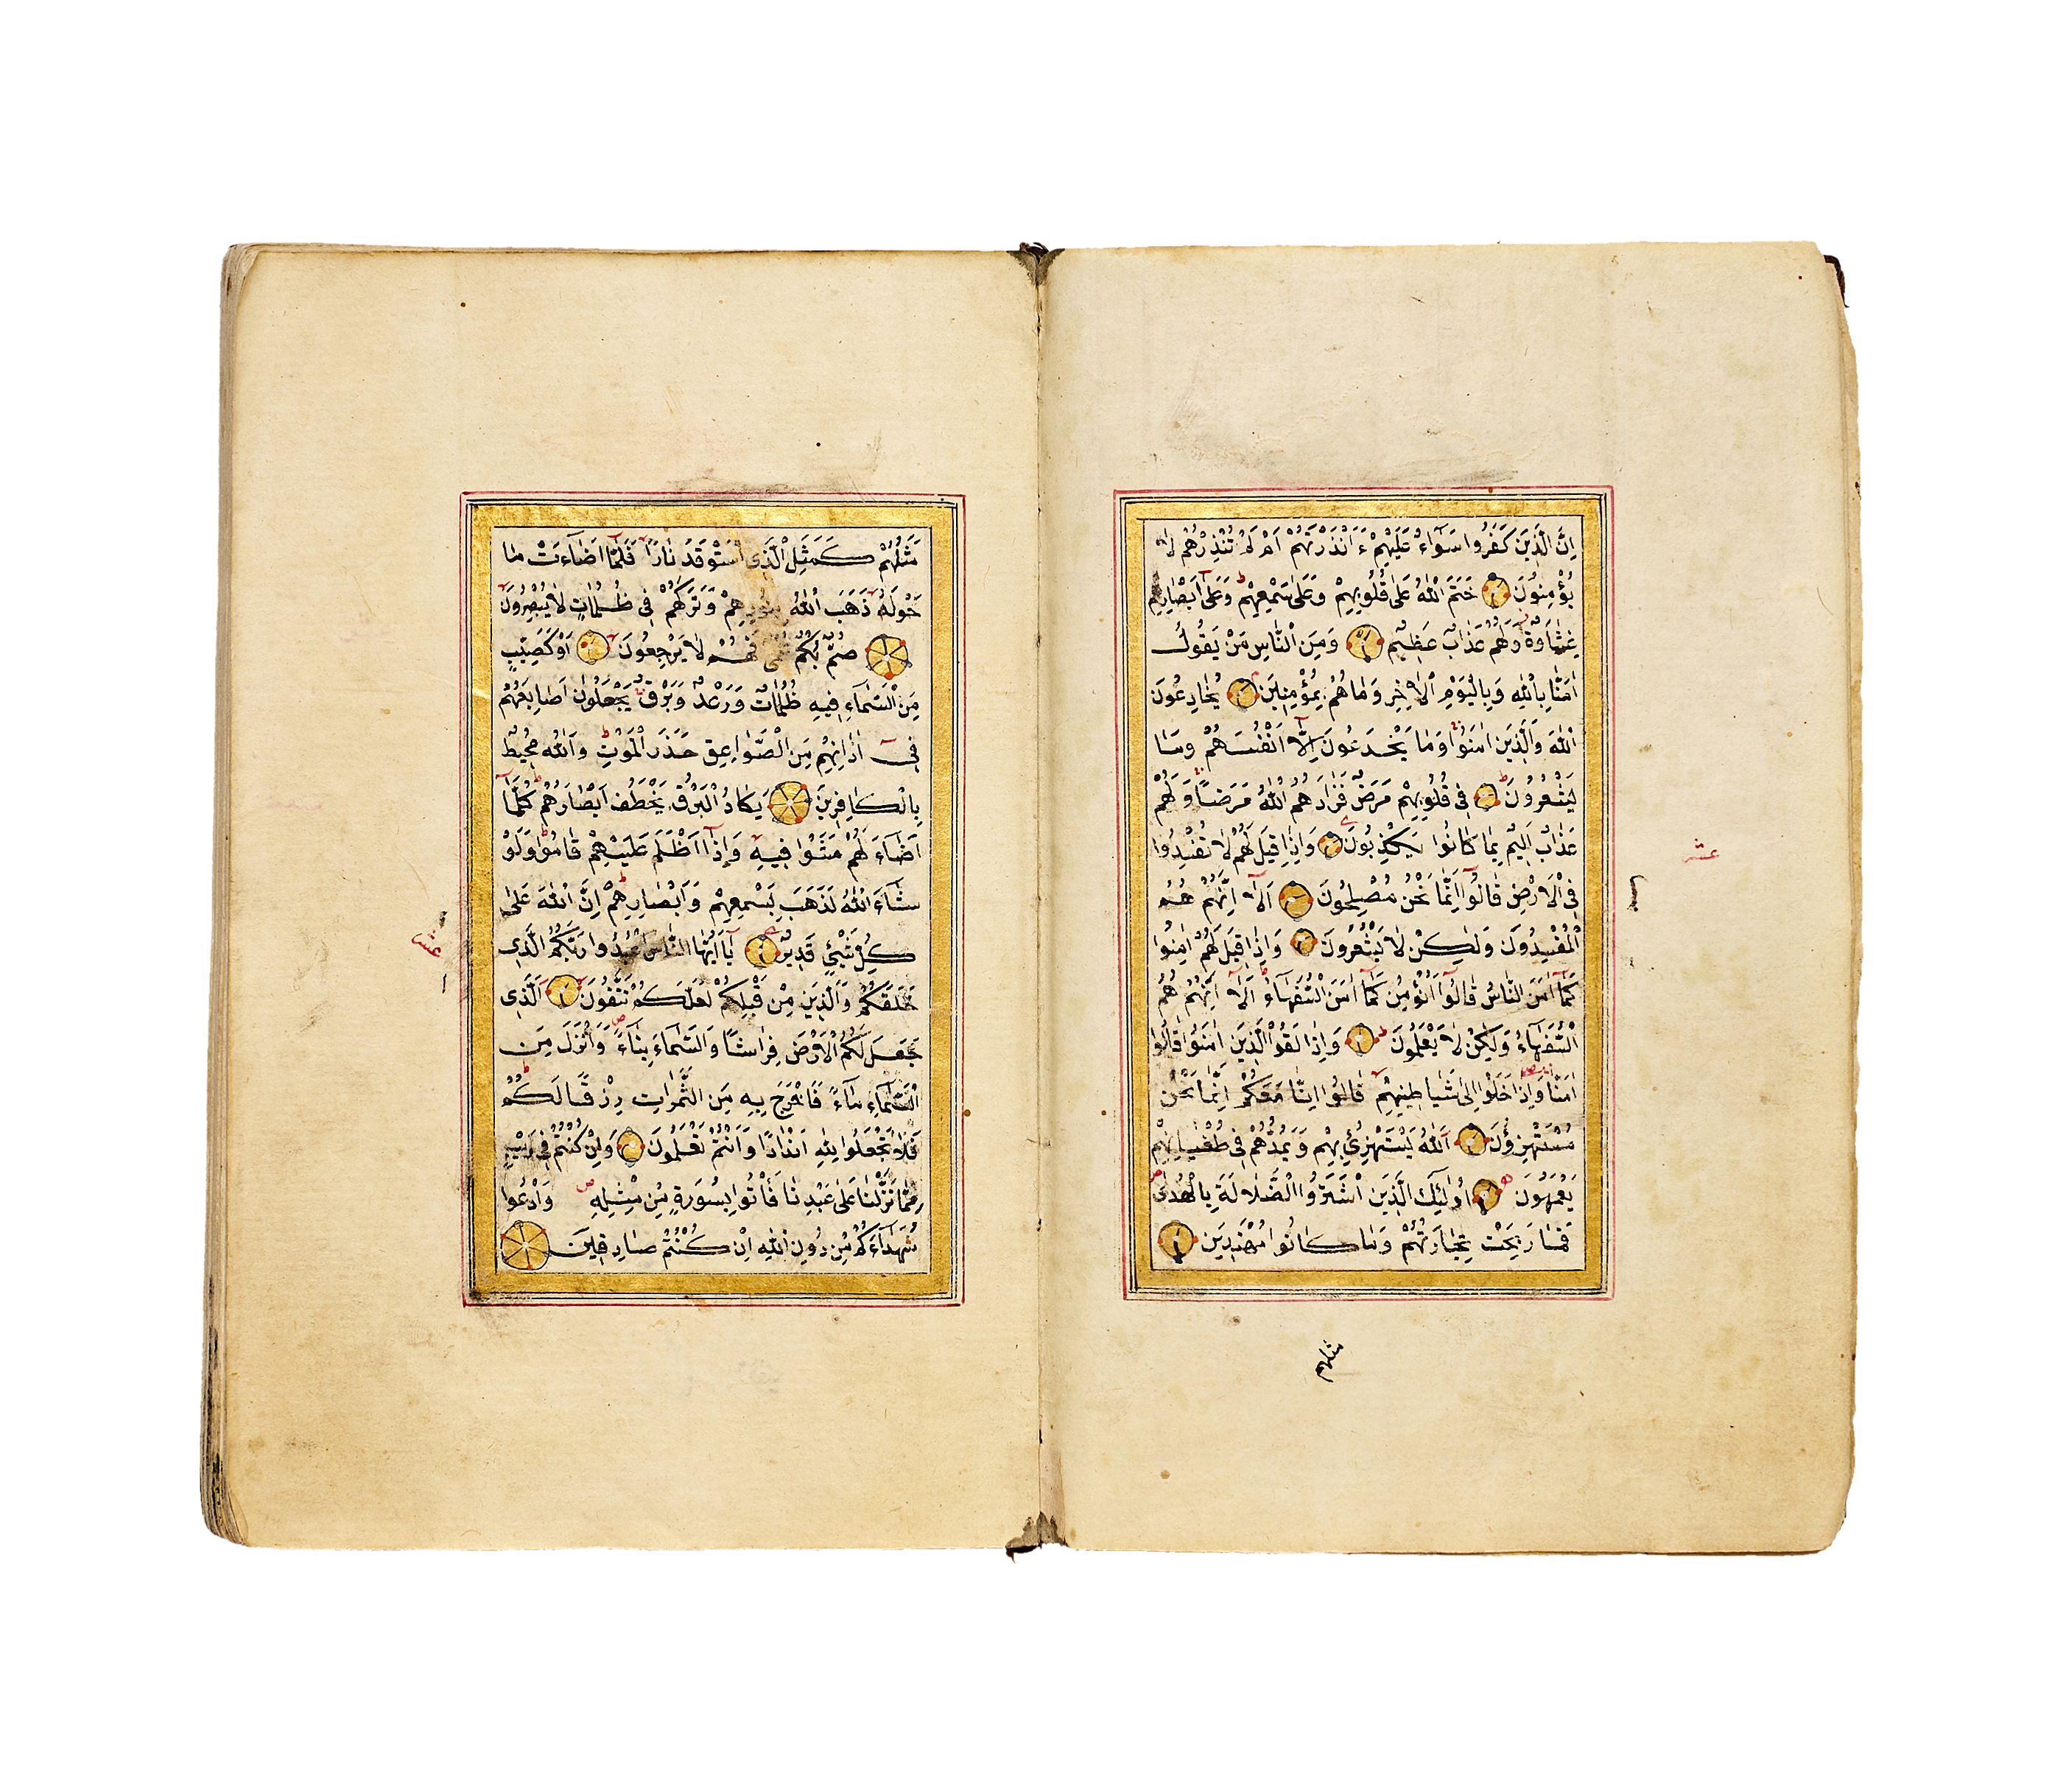 اِنَّ الَّذِينَ كَفَرُوا سَوَآءٌ عَلَيْهِمْ ءَاَنْذَرْتَهُمْ اَمْ لَمْ تُنْذِرْهُمْ لَا
يُؤْمِنُونَ خَتَمَ اللّٰهُ عَلٰى قُلُوبِهِمْ وَعَلٰى سَمْعِهِمْ وَعَلٰٓى اَبْصَارِهِمْ
غِشَاوَةٌ وَلَهُمْ عَذَابٌ عَظِيمٌ وَمِنَ النَّاسِ مَنْ يَقُولُ
اٰمَنَّا بِاللّٰهِ وَبِالْيَوْمِ الْاٰخِرِ وَمَا هُمْ بِمُؤْمِنِينَ يُخَادِعُونَ
اللّٰهَ وَالَّذِينَ اٰمَنُوا وَمَا يَخْدَعُونَ اِلَّٓا اَنْفُسَهُمْ وَمَا
يَشْعُرُونَ فِى قُلُوبِهِمْ مَرَضٌ فَزَادَهُمُ اللّٰهُ مَرَضًا وَلَهُمْ
عَذَابٌ اَلِيمٌ بِمَا كَانُوا يَكْذِبُونَ وَاِذَا قِيلَ لَهُمْ لَا تُفْسِدُوا
فِى الْاَرْضِ قَالُوٓا اِنَّمَا نَحْنُ مُصْلِحُونَ اَلَٓا اِنَّهُمْ هُمُ
الْمُفْسِدُونَ وَلٰكِنْ لَا يَشْعُرُونَ وَاِذَا قِيلَ لَهُمْ اٰمِنُوا
كَمَٓا اٰمَنَ النَّاسُ قَالُوٓا اَنُؤْمِنُ كَمَٓا اٰمَنَ السُّفَهَآءُ اَلَٓا اِنَّهُمْ هُمُ
السُّفَهَآءُ وَلٰكِنْ لَا يَعْلَمُونَ وَاِذَا لَقُوا الَّذِينَ اٰمَنُوا قَالُٓوا
اٰمَنَّا وَاِذَا خَلَوْا اِلٰى شَيَاطِينِهِمْ قَالُٓوا اِنَّا مَعَكُمْ اِنَّمَا نَحْنُ
مُسْتَهْزِؤُنَ اَللّٰهُ يَسْتَهْزِئُ بِهِمْ وَيَمُدُّهُمْ فِى طُغْيَانِهِمْ
يَعْمَهُونَ اُولٰٓئِكَ الَّذِينَ اشْتَرَوُا الضَّلَالَةَ بِالْهُدٰى
فَمَا رَبِحَتْ تِجَارَتُهُمْ وَمَا كَانُوا مُهْتَدِينَ
عشر
مثلهم
مَثَلُهُمْ كَمَثَلِ الَّذِى اسْتَوْقَدَ نَارًا فَلَمَّٓا اَضَآءَتْ مَا
حَوْلَهُ ذَهَبَ اللّٰهُ بِنُورِهِمْ وَتَرَكَهُمْ فِى ظُلُمَاتٍ لَا يُبْصِرُونَ
صُمٌّ بُكْمٌ عُمْىٌ فَهُمْ لَا يَرْجِعُونَ اَوْ كَصَيِّبٍ
مِنَ السَّمَآءِ فِيهِ ظُلُمَاتٌ وَرَعْدٌ وَبَرْقٌ يَجْعَلُونَ اَصَابِعَهُمْ
فِىٓ اٰذَانِهِمْ مِنَ الصَّوَاعِقِ حَذَرَ الْمَوْتِ وَاللّٰهُ مُحِيطٌ
بِالْكَافِرِينَ يَكَادُ الْبَرْقُ يَخْطَفُ اَبْصَارَهُمْ كُلَّمَٓا
اَضَآءَ لَهُمْ مَشَوْا فِيهِ وَاِذَٓا اَظْلَمَ عَلَيْهِمْ قَامُوا وَلَوْ
شَآءَ اللّٰهُ لَذَهَبَ بِسَمْعِهِمْ وَاَبْصَارِهِمْ اِنَّ اللّٰهَ عَلٰى
كُلِّ شَيْئٍ قَدِيرٌ يَٓا اَيُّهَا النَّاسُ اعْبُدُوا رَبَّكُمُ الَّذِى
خَلَقَكُمْ وَالَّذِينَ مِنْ قَبْلِكُمْ لَعَلَّكُمْ تَتَّقُونَ اَلَّذِى
جَعَلَ لَكُمُ الْاَرْضَ فِرَاشًا وَالسَّمَآءَ بِنَآءً وَاَنْزَلَ مِنَ
السَّمَآءِ مَآءً فَاَخْرَجَ بِهِ مِنَ الثَّمَرَاتِ رِزْقًا لَكُمْ
فَلَا تَجْعَلُوا لِلّٰهِ اَنْدَادًا وَاَنْتُمْ تَعْلَمُونَ وَاِنْ كُنْتُمْ فِى رَيْبٍ
مِمَّا نَزَّلْنَا عَلٰى عَبْدِنَا فَأْتُوا بِسُورَةٍ مِنْ مِثْلِهِ وَادْعُوا
شُهَدَآءَكُمْ مِنْ دُونِ اللّٰهِ اِنْ كُنْتُمْ صَادِقِينَ
عشر